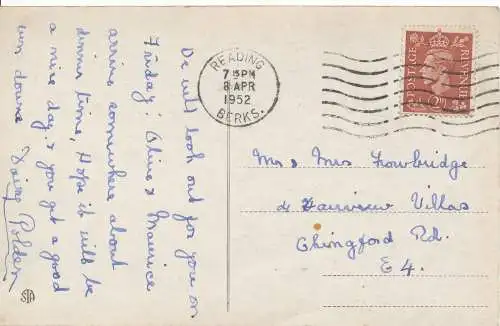 We will look out for you on
Friday. Olive & Maurice
arrive somewhere about
dinner time, Hope it will be
a nice day & you get a good
run down
Doing Polden
READING
7 15 PM
8 APR
1952
BERKS.
POSTAGE
REVENUE
Mr & Mrs Trowbridge
2 Fairview Villas
Chingford Rd.
E 4.